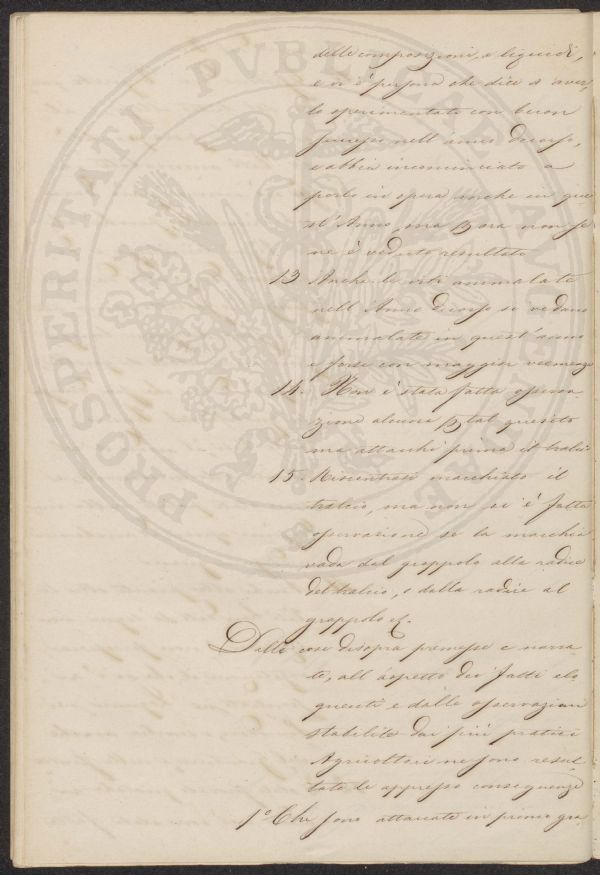 delle composizioni, o liquidi,
e vi è persona che dice d'aver,
lo sperimentato con buon
successo nell'anno decorso,
e abbia incominciato a
porlo in opera anche in que
st'Anno, ma pora non se
ne è veduto resultato
13 Anche le viti ammalate
nell'Anno decorso se vedano
ammalate in quest'anno
e forse con maggior veemenza
14. Non è stata fatta opera
zione alcuna p tal quesito
ma attacchi prima il tralcio
15. Riscontrasi macchiato il
tralcio, ma non si è fatta
osservazione se la macchia
vada dal grappolo alla radice
del tralcio, e dalla radice al
grappolo &c.
Dalle cose disopra premesse e narra
te, all'aspetto dei fatti elo
quenti e dalle osservazioni
stabilite dai più pratici
Agricoltori ne sono resul
tate le appresso conseguenze
1° Che sono attaccate in primo gra
PROSPERITATI PVBLICAE AVGENDAE